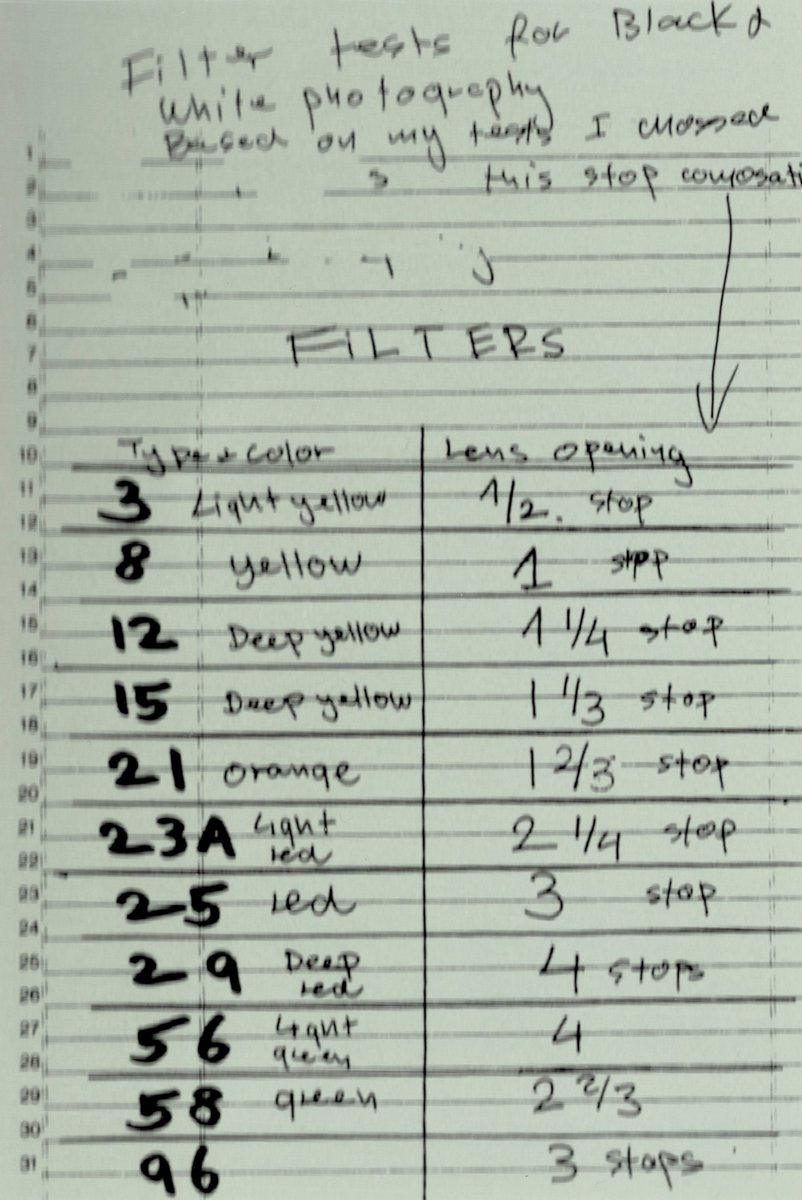 Filter tests for Black &
White photography
Based on my tests I chossed
this stop composati
FILTERS
Type + color Lens opening
3 Light yellow 1/2. stop
8 yellow 1 stop
12 Deep yellow 1 1/4 stop
15 Deep yellow 1 1/3 stop
21 orange 1 2/3 stop
23A Light red 2 1/4 stop
25 red 3 stop
29 Deep red 4 stops
56 Light green 4
58 green 2 2/3
96 3 stops
1
2
3
4
5
6
7
8
9
10
11
12
13
14
15
16
17
18
19
20
21
22
23
24
25
26
27
28
29
30
31